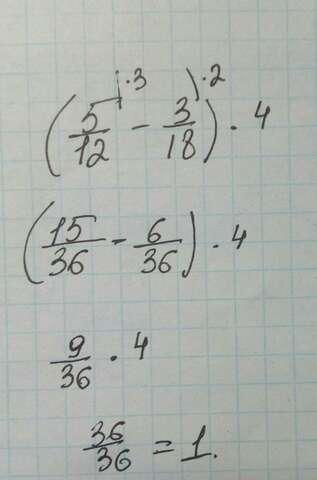 (5/12 ·3 - 3/18 ·2) · 4
(15/36 - 6/36) · 4
9/36 · 4
36/36 = 1.